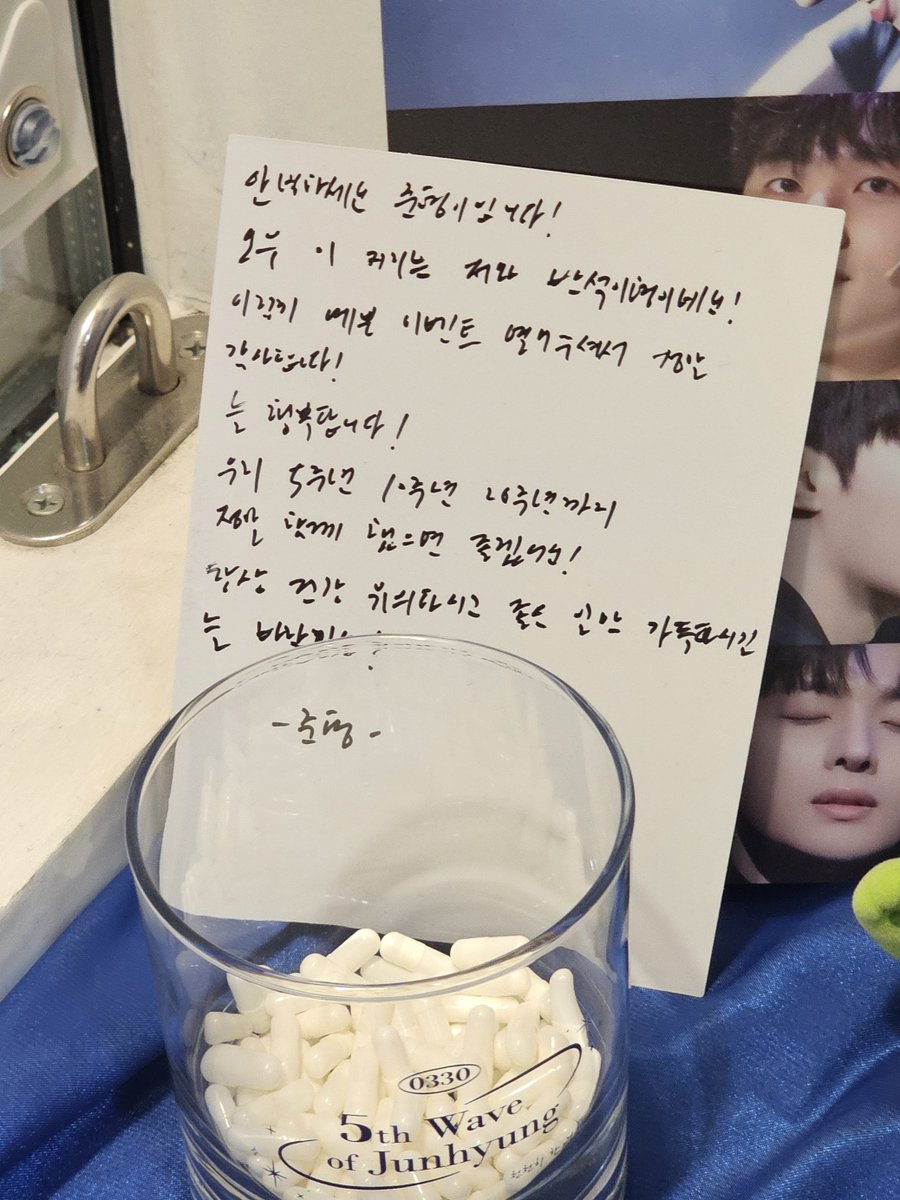 안녕하세요 준형이입니다!
오우 이 자리는 저와 반석이형이네요!
이렇게 예쁜 이벤트 열어주셔서 정말
감사합니다!
는 행복합니다!
우리 5주년 10주년 20주년까지
정말 함께 했으면 좋겠네요!
항상 건강 유의하시고 좋은 일만 가득하시길
는
-준형-
0330
5th Wave
of Junhyung